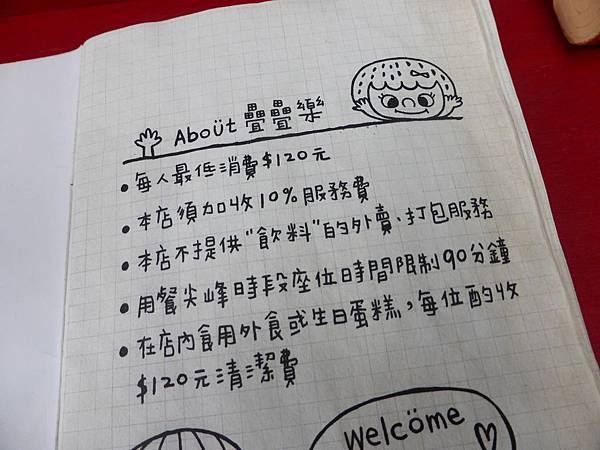 About 疊疊樂
• 每人最低消費$120元
• 本店須加收10%服務費
• 本店不提供"飲料"的外賣、打包服務
• 用餐尖峰時段座位時間限制90分鐘
• 在店內食用外食或生日蛋糕，每位酌收
$120元清潔費
Welcome